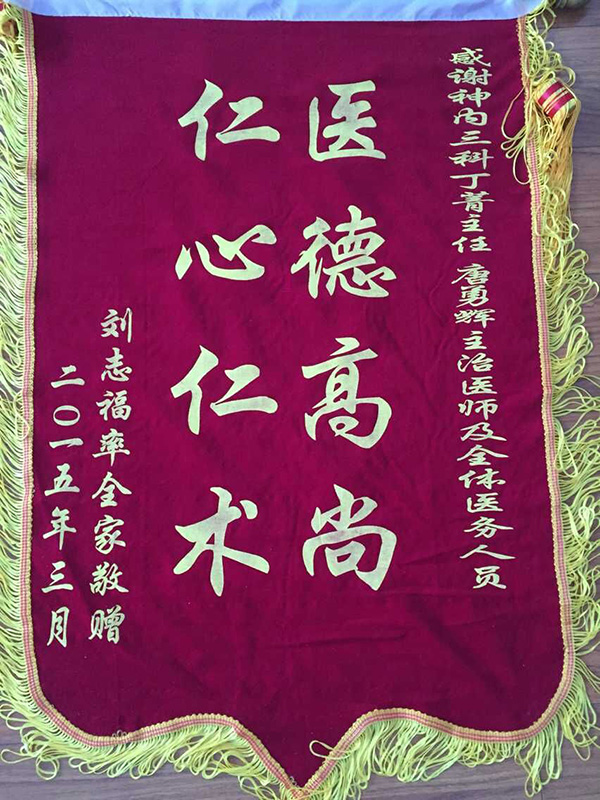 感谢神内三科丁菁主任 唐勇辉主治医师及全体医务人员
医德高尚
仁心仁术
刘志福率全家敬赠
二〇一五年三月